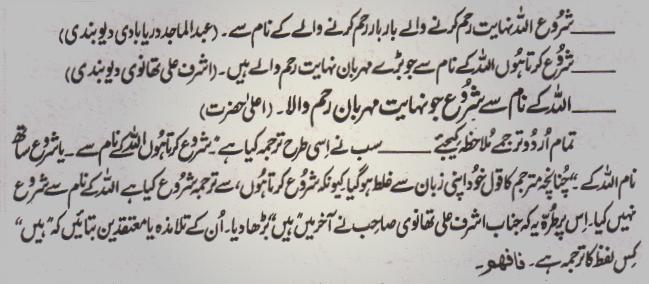 ____ شروع اللہ نہایت رحم کرنے والے بار بار رحم کرنے والے کے نام سے۔ (عبدالماجد دریابادی دیوبندی)
____ شروع کرتا ہوں اللہ کے نام سے جو بڑے مہربان نہایت رحم والے ہیں۔ (اشرف علی تھانوی دیوبندی)
____ اللہ کے نام سے شروع جو نہایت مہربان رحم والا۔ (اعلیٰ حضرت)
تمام اُردو ترجمے ملاحظہ کیجئے ____ سب نے اِسی طرح ترجمہ کیا ہے۔ شروع کرتا ہوں اللہ کے نام سے۔ یا شروع ساتھ
نام اللہ کے۔" چنانچہ مترجم کا قول خود اپنی زبان سے غلط ہو گیا کیونکہ شروع کرتا ہوں، سے ترجمہ شروع کیا ہے اللہ کے نام سے شروع
نہیں کیا۔ اِس پر طُرّہ یہ کہ جناب اشرف علی تھانوی صاحب نے آخر میں "ہیں" بڑھا دیا۔ اُن کے تلامذہ یا معتقدین بتائیں کہ "ہیں"
کِس لفظ کا ترجمہ ہے۔ فافھو۔